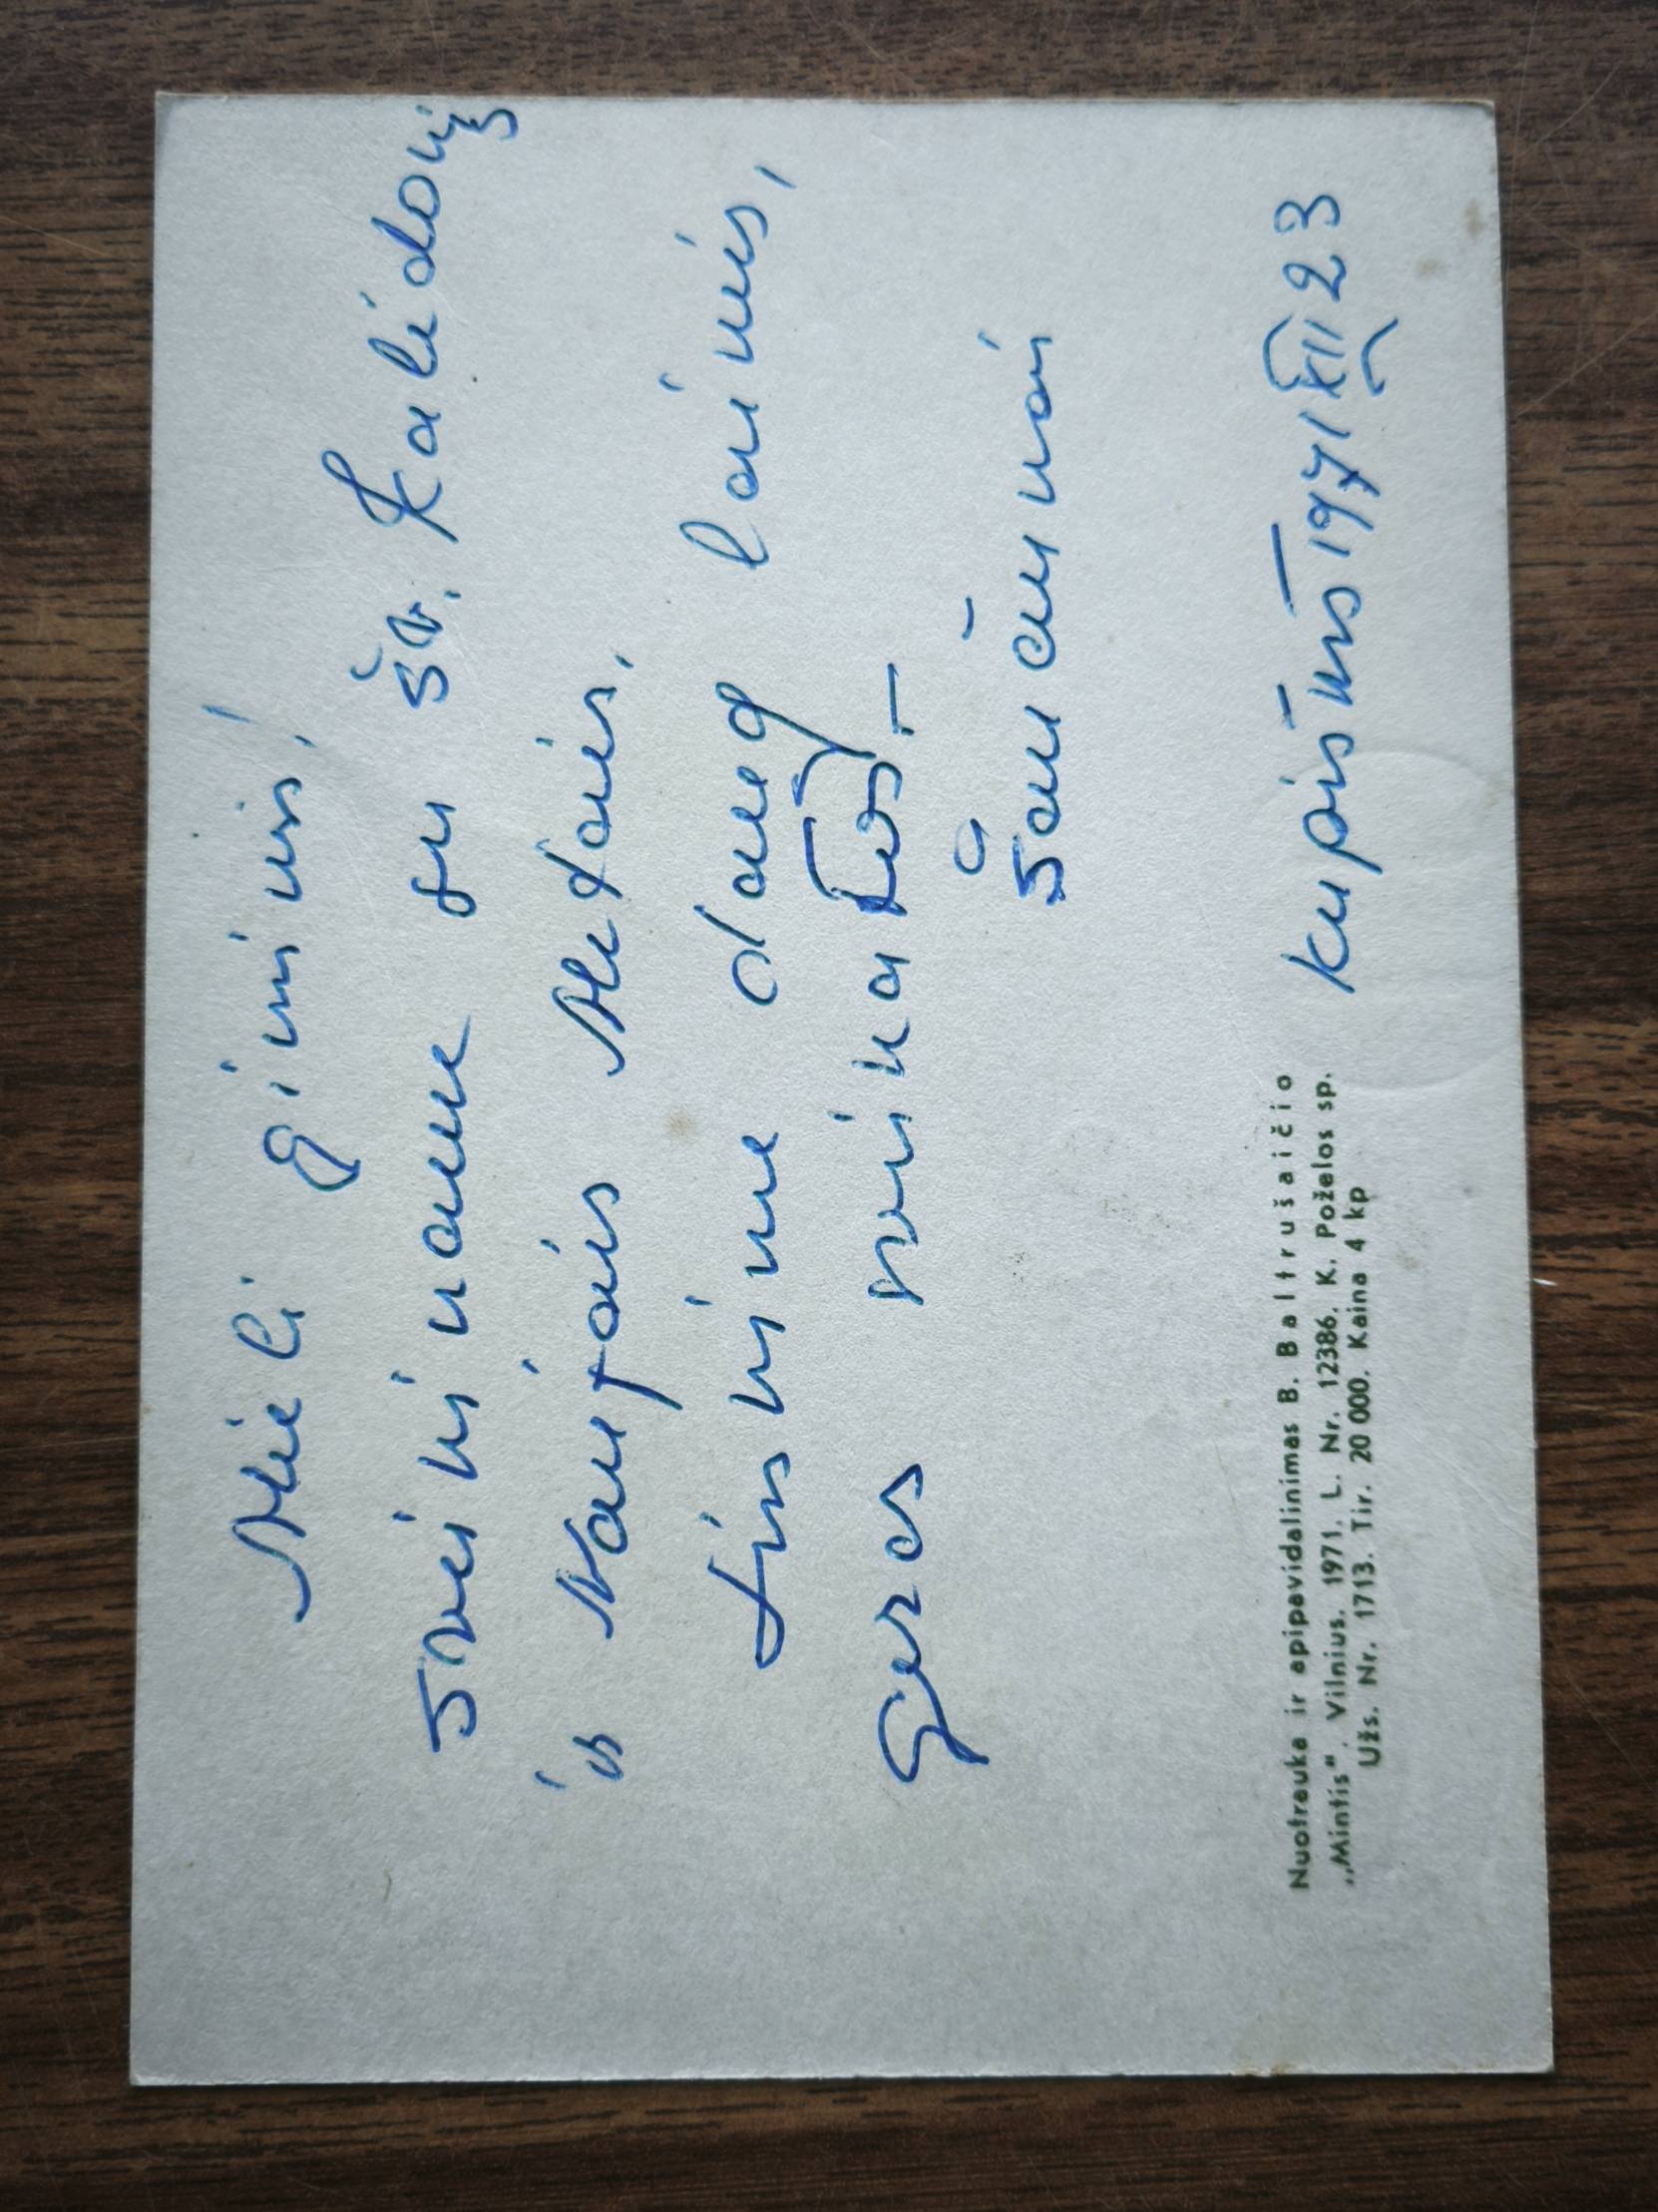 Mieli giminės!
Sveikiname su šv. Kalėdomis
ir Naujais Metais.
Linkime daug laimės,
Geros sveikatos –
Kupiškis 1971 XII 23
Nuotrauka ir apipavidalinimas B. Baltrušaičio
„Mintis“. Vilnius. 1971. L. Nr. 12386. K. Poželos sp.
Užs. Nr. 1713. Tir. 20 000. Kaina 4 kp